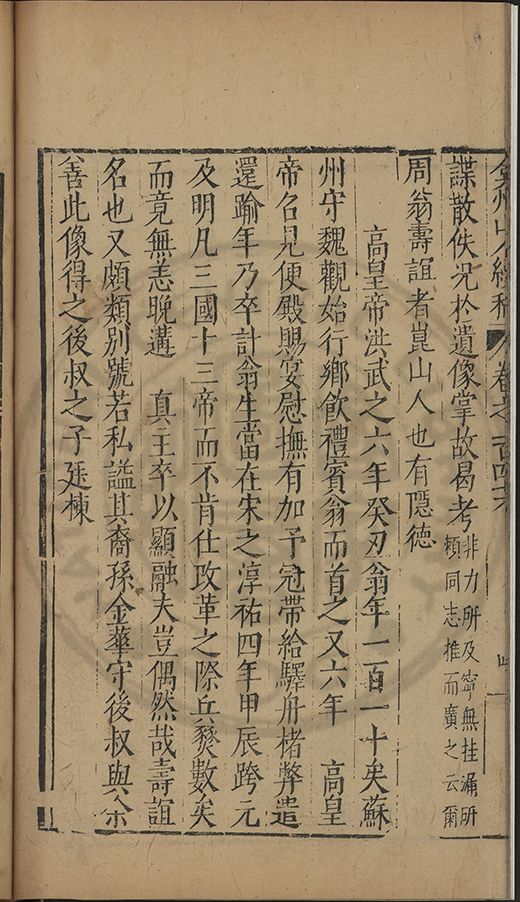 弇州山人續稿 卷之一百四十六
諜散佚况於遺像掌故曷考非力所及寧無挂漏所
賴同志推而廣之云爾
周翁壽誼者崑山人也有隱德
高皇帝洪武之六年癸丑翁年一百一十矣蘇
州守魏觀始行鄉飲禮賓翁而首之又六年 高皇
帝召見便殿賜宴慰撫有加予冠帶給驛舟楮弊遣
還踰年乃卒計翁生當在宋之淳祐四年甲辰跨元
及明凡三國十三帝而不肯仕改革之際兵燹數矣
而竟無恙晚遘 真王卒以顯融夫豈偶然哉壽誼
名也又頗類別號若私謚其裔孫金華守後叔與余
善此像得之後叔之子廷棟